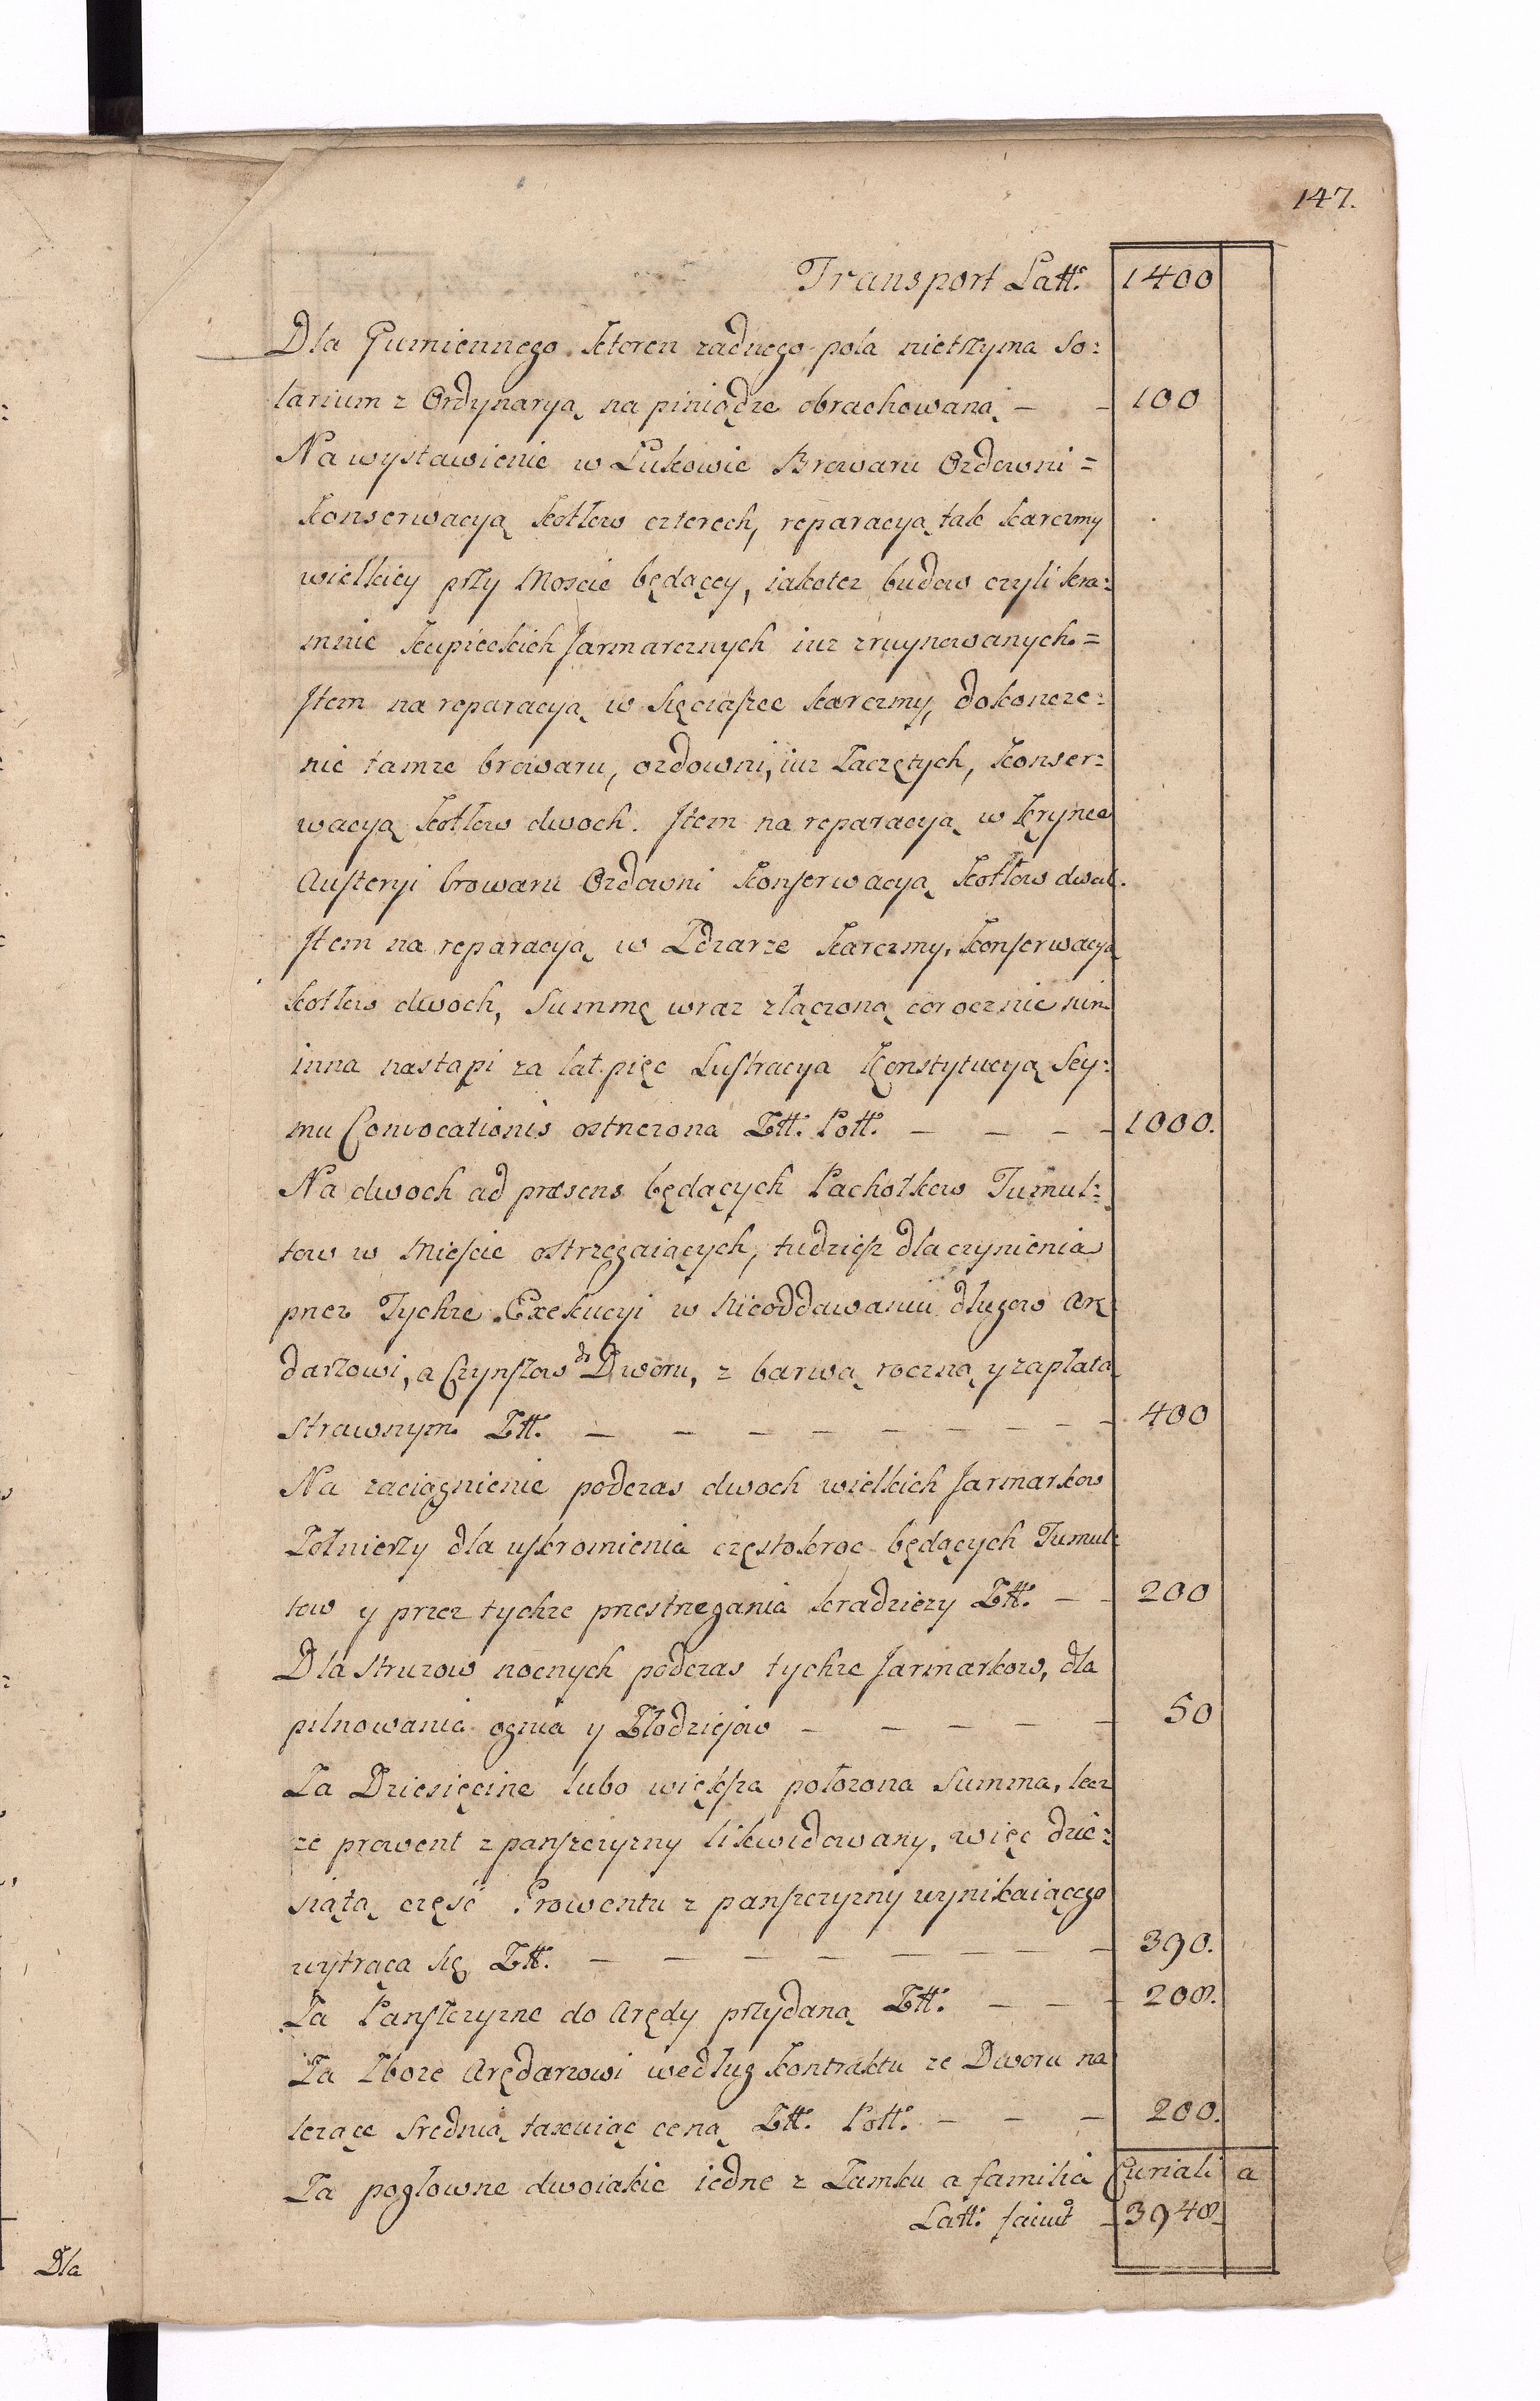 147.
Transport Latt: 1400
Dla Gumiennego ktoren zadnego pola nietrzyma So:
larium z Ordynaryą na piniądze obrachowaną — - 100
Na wystawienie w Lukowie Browaru Ozdowni =
konserwacyą kotłow czterech, reparacyą tak karczmy
wielkiey przy Moscie będącey, iakotez budow czyli kra:
mnic kupieckich Jarmarcznych iuz zruynowanych. =
Jtem na reparacyą w karczmy, dokoncze:
nie tamze browaru, ozdowni, iuz Zaczętych, konser:
wacyą kotłow dwoch. Jtem na reparacyą w Krynce
Austeryi browaru Ozdowni konserwacyą kotłow dwuch.
Jtem na reparacyą w Zdzarze karczmy, konserwacyą
kotłow dwoch, Summę wraz złączoną corocznie nim
inna nastąpi za lat pięc Lustracya Konstytucyą Sey:
mu Convocationis ostrzezona Ztt: Poll: — — — - 1000.
Na dwoch ad præsens będących Pachołkow Tumul:
tow w Miescie ostrzegaiących, tudziesz dla czynienia
przez Tychze Exekucyi w Nieoddawaniu długow Arę
darzowi, a Czynszow do Dworu, z barwą roczną y zapłatą
strawnym Ztt. — — — — — — — - 400
Na zaciągnienie podczas dwoch wielkich Jarmarkow
Zołnierzy dla uskromienia częstokroc będących Tumul:
tow y przez tychze przestrzegania kradziezy Ztt: — - 200
Dla Struzow nocnych podczas tychze Jarmarkow, dla
pilnowania ognia y Złodziejow — — — — - 50
Za Dziesięcine lubo większa połozona Summa, lecz
ze prowent z panszczyzny likwidowany, więc dzie:
siątą część Prowentu z panszczyzny wynikaiącego
wytrąca się Ztt. — — — — — — - 390.
Za Panszczyzne do Arędy przydaną Ztt: — — - 208.
Za Zboze Arędarzowi według kontraktu ze Dworu na
lezące Srednią taxuiąc ceną Ztt. Poll: — — - 200.
Za pogłowne dwoiakie iedne z Zamku a familia Curiali a
Latt: faciut - 3948.
Dla